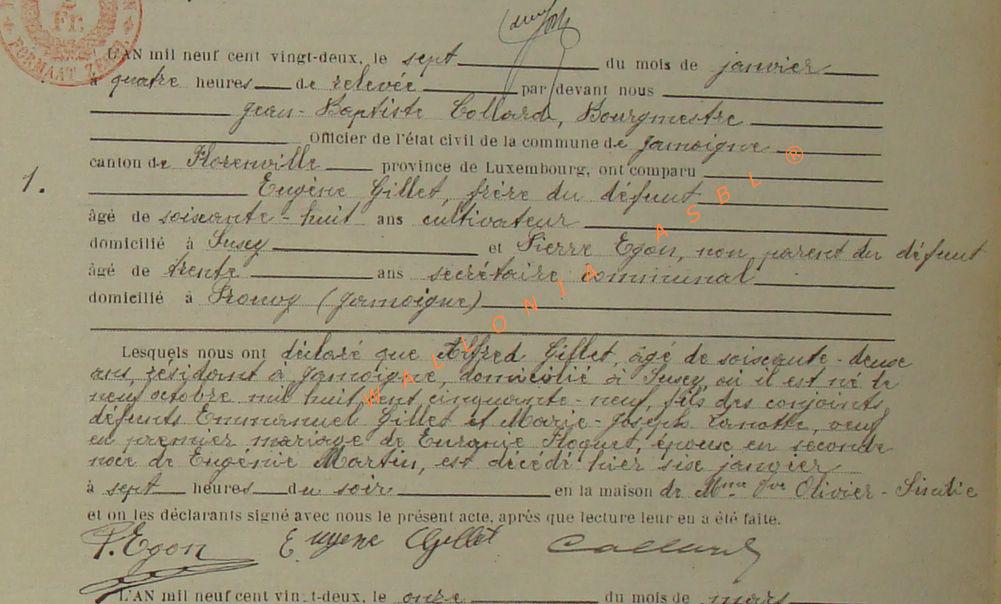 FR.
FORMAAT ZEGEL
L'AN mil neuf cent vingt-deux, le sept du mois de janvier
à quatre heures de relevée par devant nous
Jean-Baptiste Collard, Bourgmestre
Officier de l'état civil de la commune de Jamoigne
canton de Florenville province de Luxembourg, ont comparu
1.
Eugène Gillet, frère du défunt
âgé de soixante-huit ans cultivateur
domicilié à Susey et Pierre Egon, non parent du défunt
âgé de trente ans secrétaire communal
domicilié à Prouvy (Jamoigne)
Lesquels nous ont déclaré que Alfred Gillet, âgé de soixante-deux
ans, résidant à Jamoigne, domicilié à Susey, où il est né le
neuf octobre mil huit cent cinquante-neuf, fils des conjoints
défunts Emmanuel Gillet et Marie-Joseph Lanotte, veuf
en premier mariage de Euranie Floquet, époux en seconde
noce de Eugénie Martin, est décédé hier six janvier
à sept heures du soir en la maison de Mme Vve Olivier-
et on les déclarants signé avec nous le présent acte, après que lecture leur en a été faite.
P. Egon Eugène Gillet Collard
L'AN mil neuf cent vingt-deux, le onze du mois de mars
WALLONIA ASBL ®